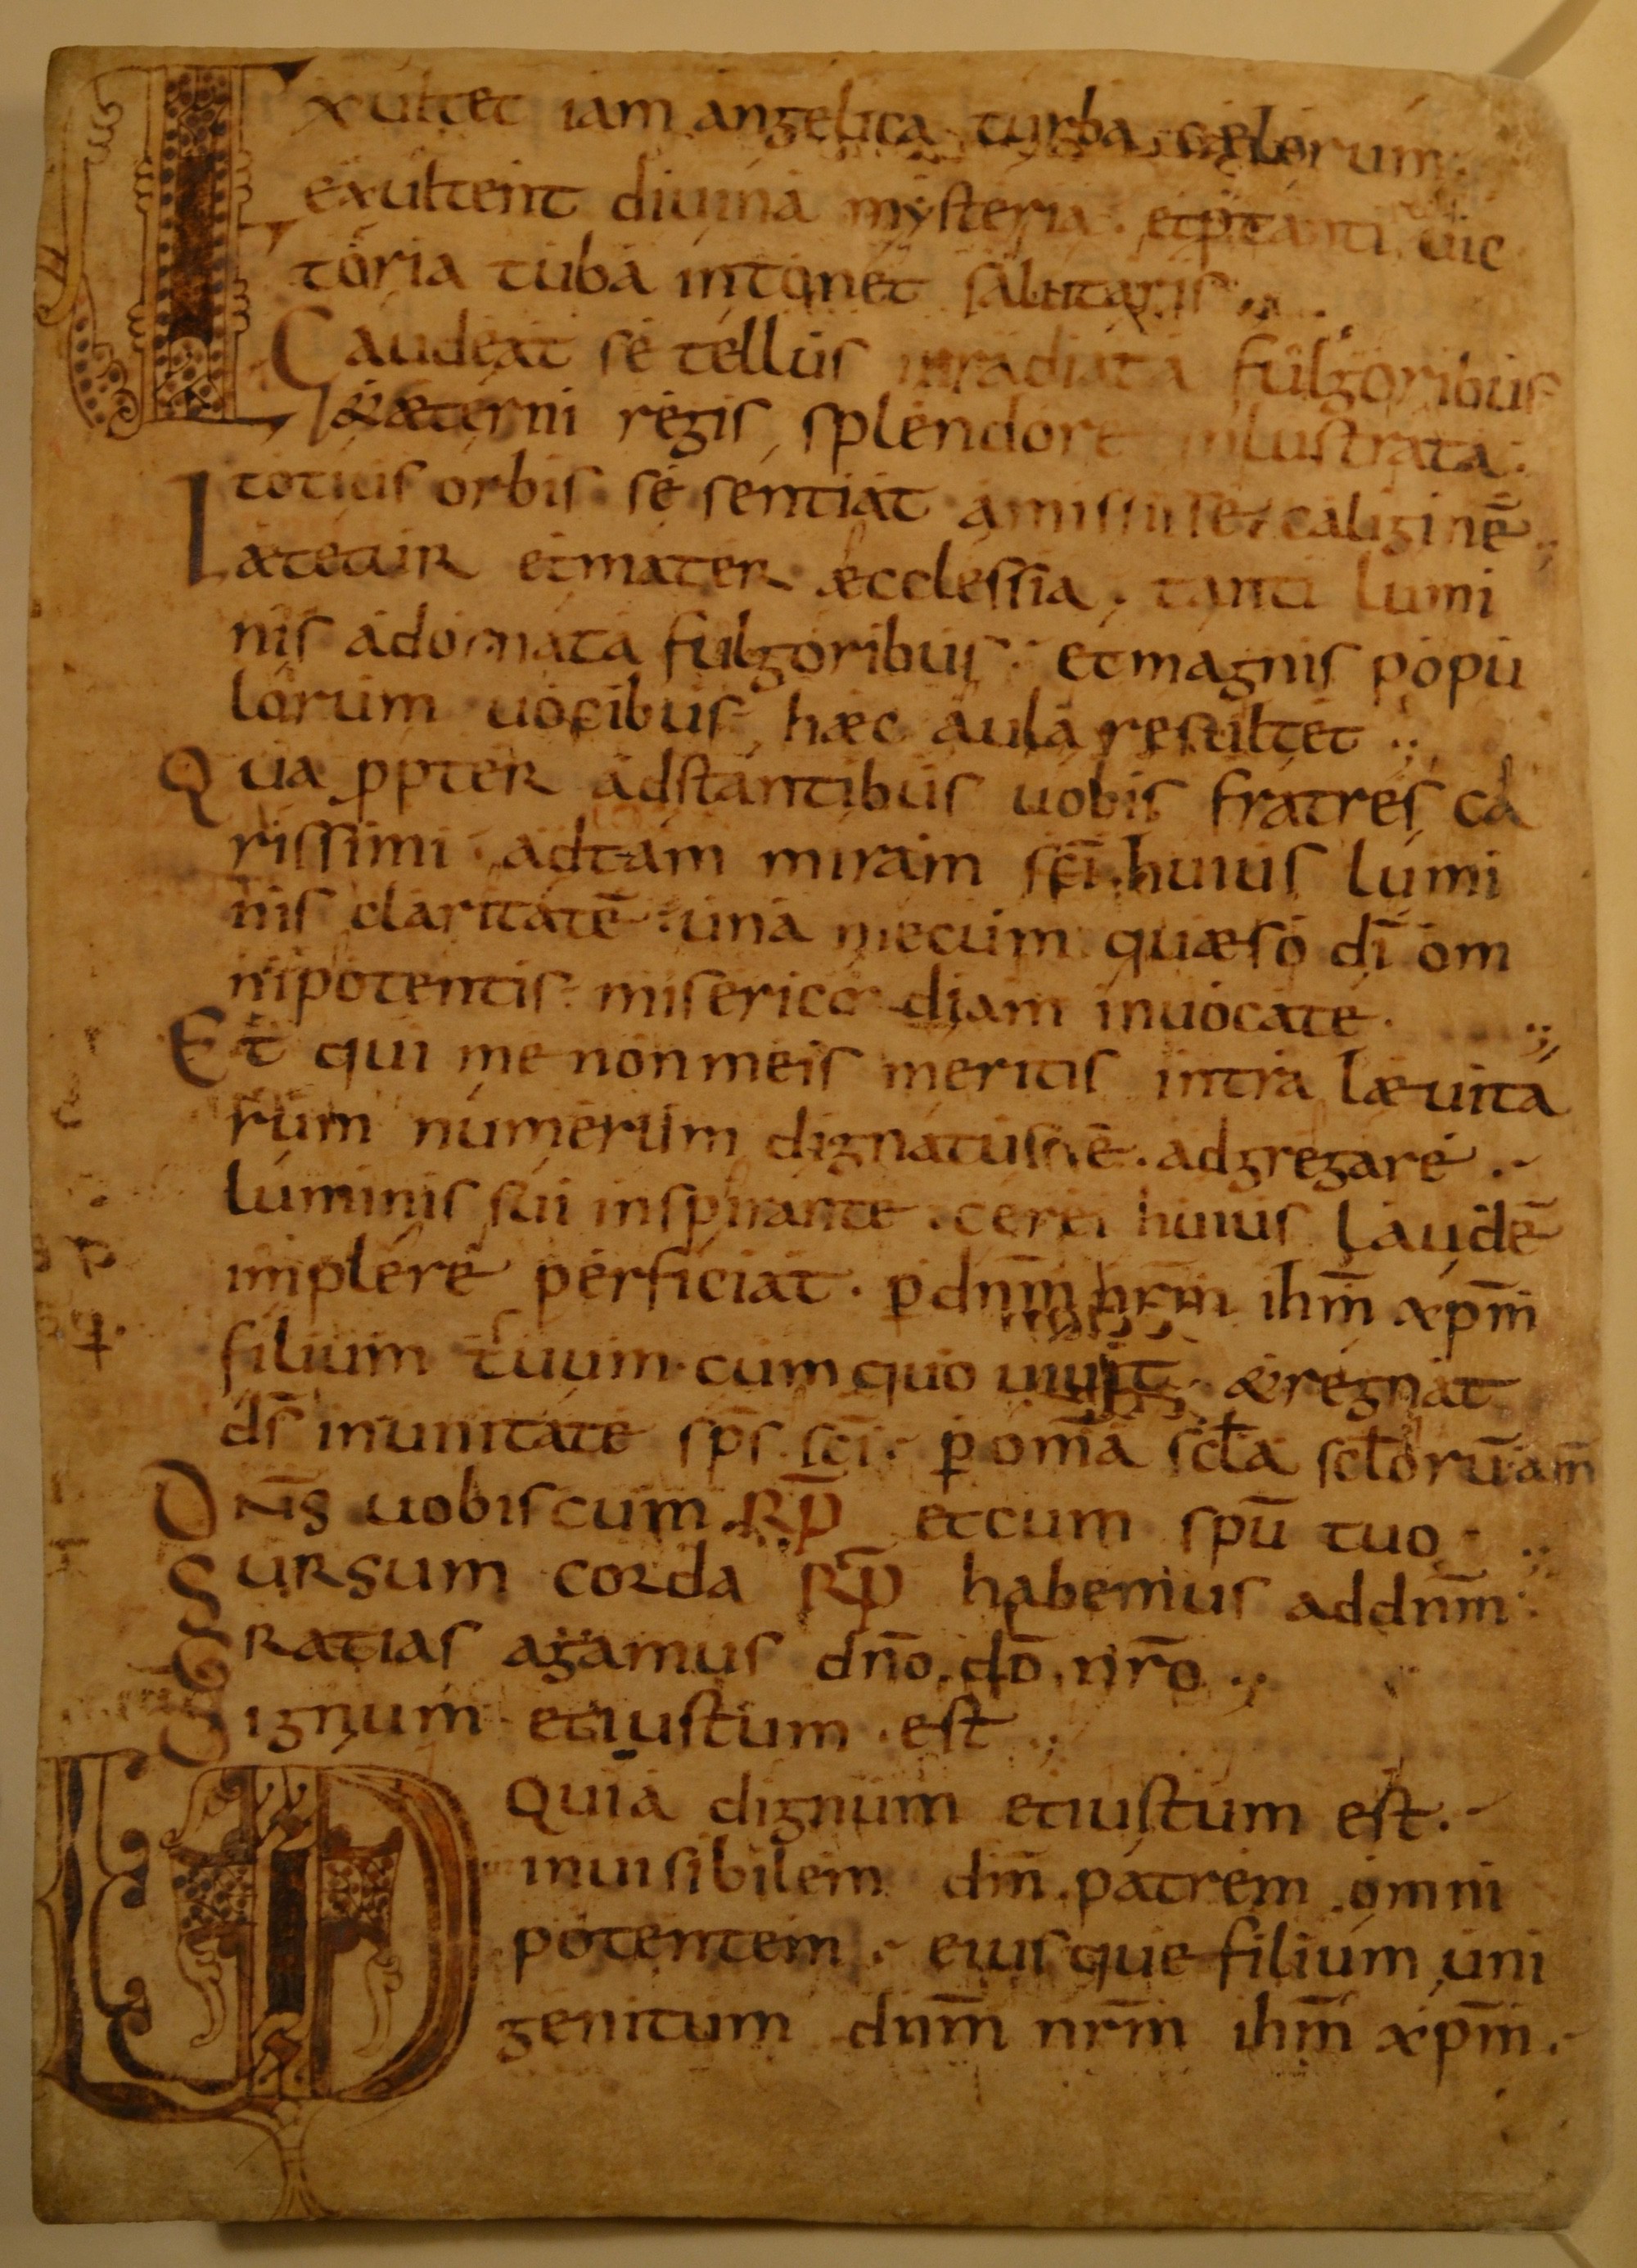 Exultet iam angelica turba caelorum.
exultent diuina mysteria. et p̄ tanti regis uic
toria tuba intonet salutaris.,
Gaudeat se tellus inradiata fulgoribus
& aeterni regis splendore inlustrata.
totius orbis se sentiat amisisse caliginē.,
Laetetur et mater aecclessia. tanti lumi
nis adornata fulgoribus. et magnis popu
lorum uocibus haec aula resultet .,
Qua ꝓpter adstantibus uobis fratres ca
rissimi. ad tam miram sc̄i huius lumi
nis claritatē. una mecum quaeso dī om
nipotentis. misericordiam inuocate.
Et qui me non meis meritis intra laeuita
rum numerum dignatus ē. adgregare.
luminis sui inspirante. cerei huius laudē
implere perficiat. ꝑ dnm̄ nrm̄ ihm̄ xpm̄
filium tuum. cum quo uiuit & regnat
ds̄ in unitate sp̄s sc̄i. ꝑ omā scła scłorū am̄
Dn̄s uobiscum. Rp̄ et cum spū tuo.
Sursum corda Rp̄ habemus ad dnm̄.
Gratias agamus dn̄o dō nr̄o .,
Dignum et iustum est .,
UD Quia dignum et iustum est.
inuisibilem dm̄ patrem omni
potentem. eiusque filium uni
genitum dnm̄ nrm̄ ihm̄ xpm̄.